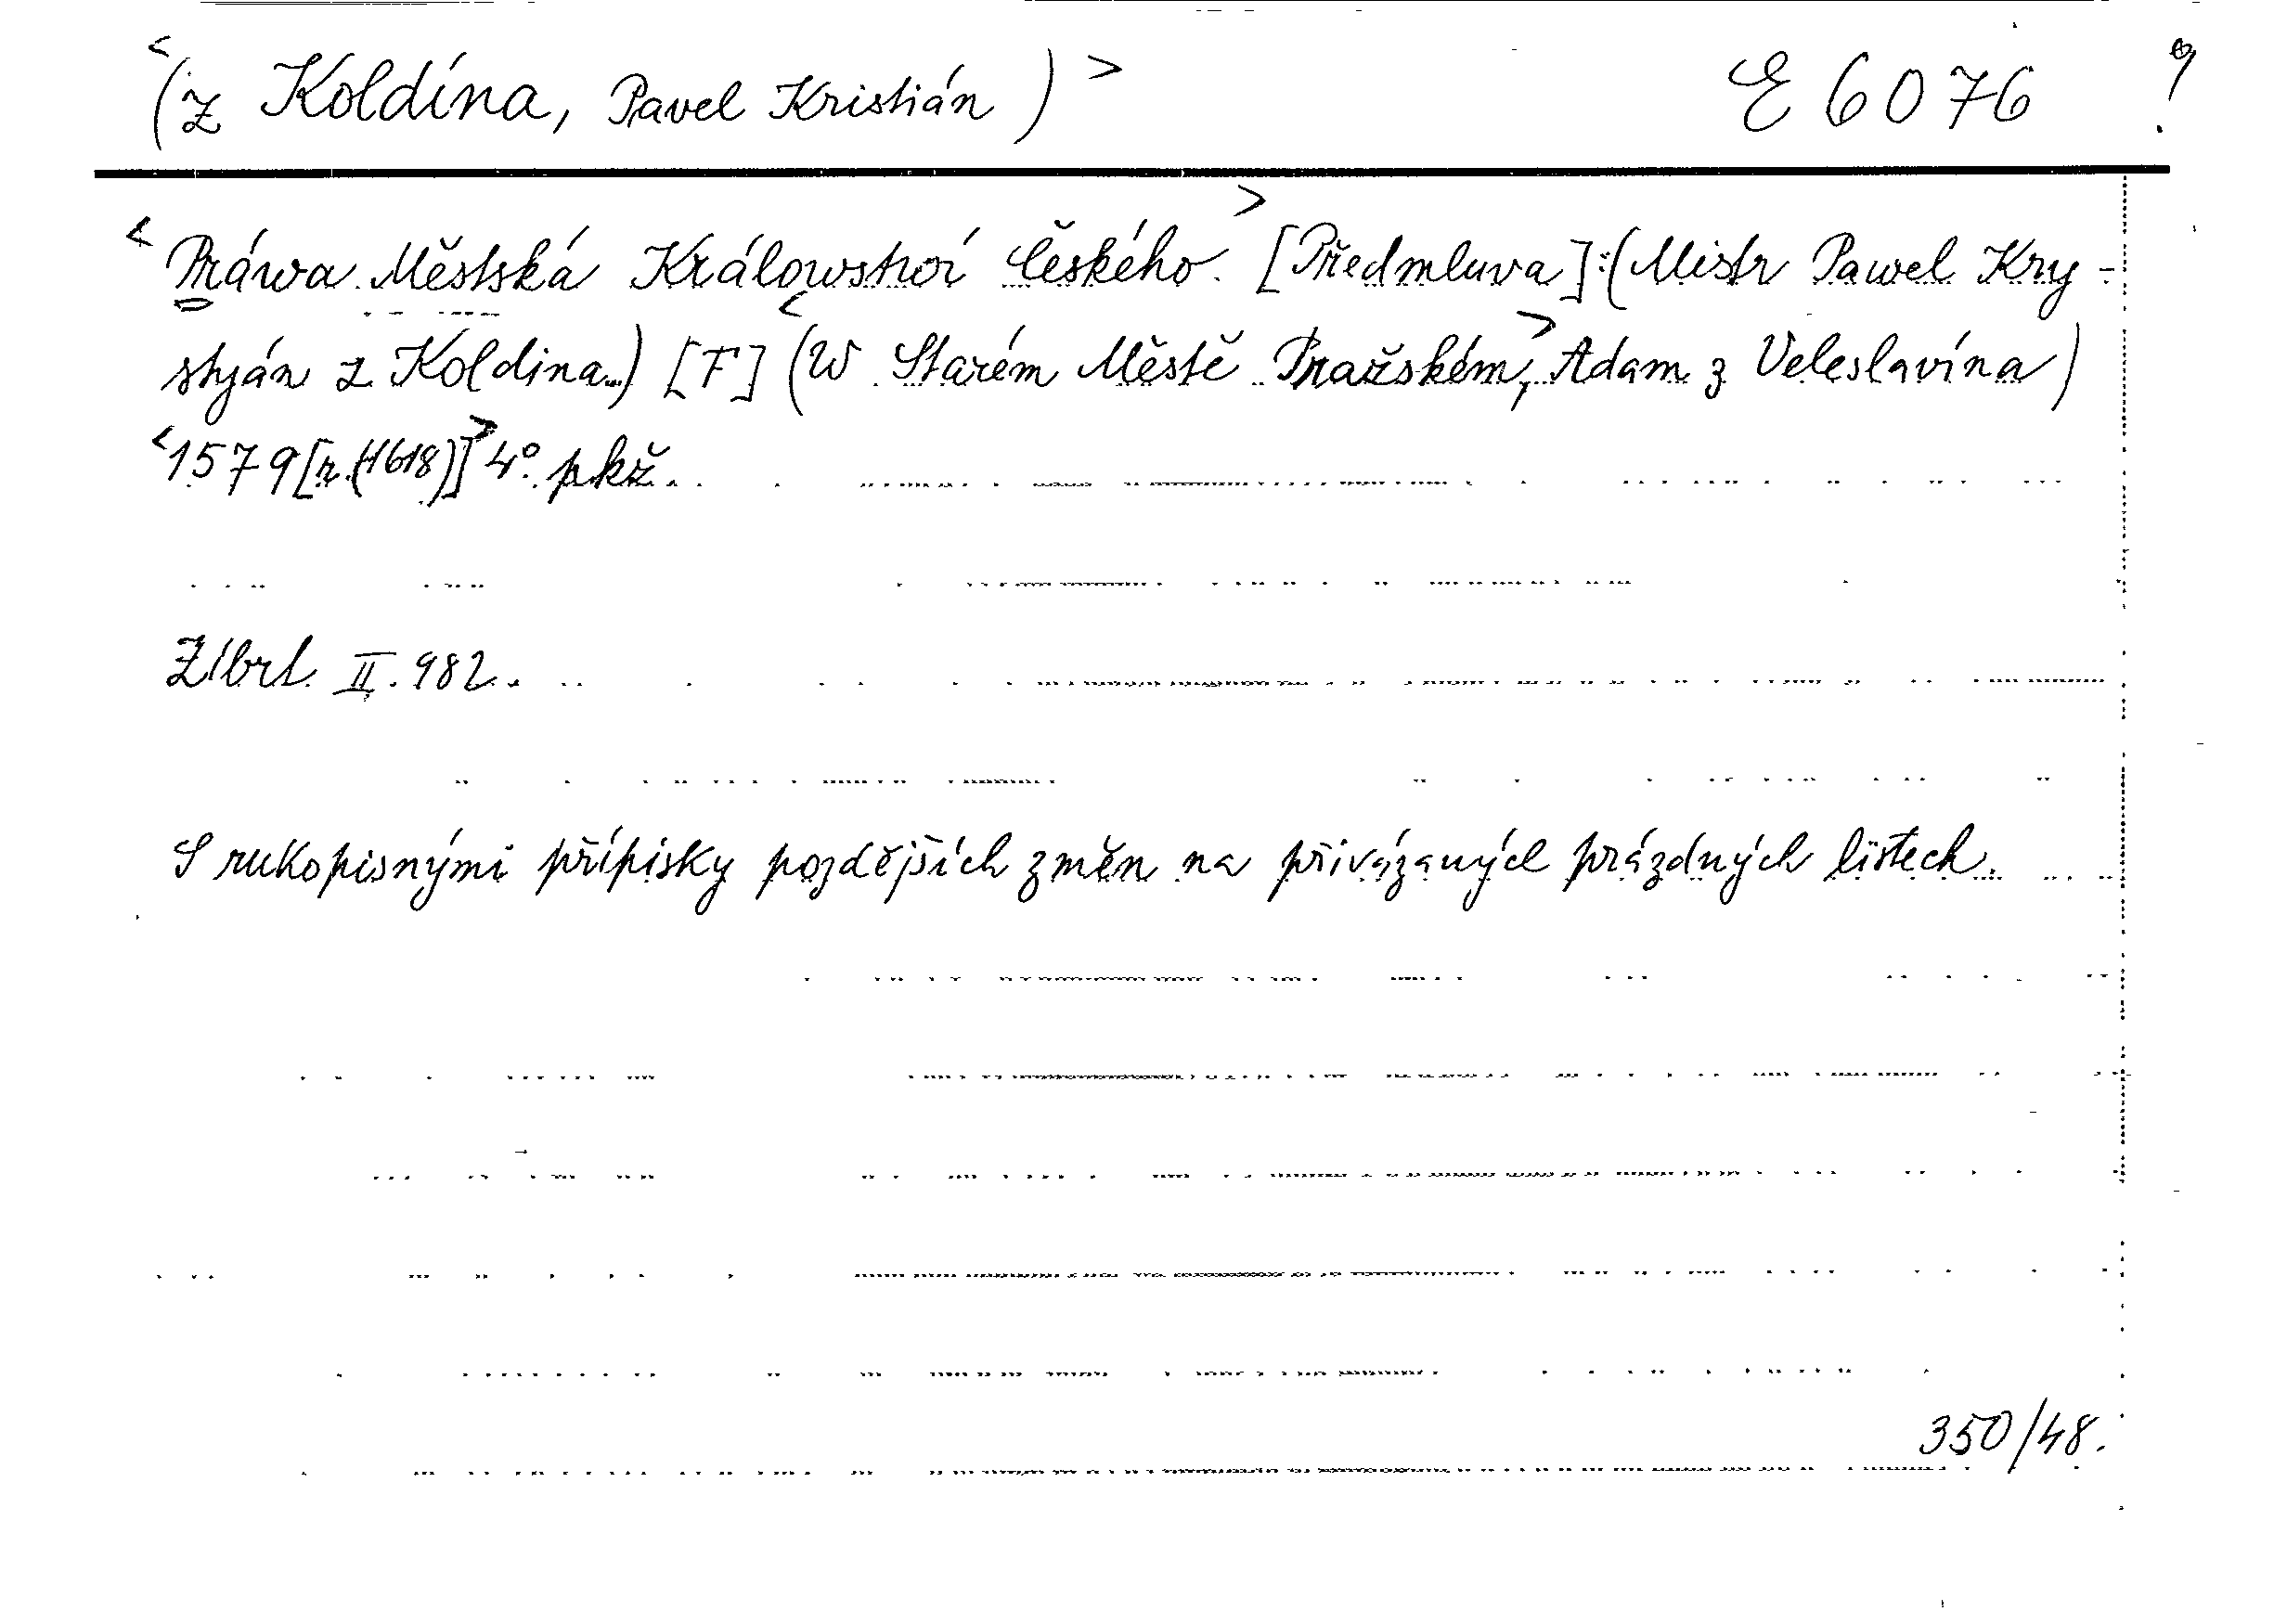 <(z Koldína, Pavel Kristián)> E 6076 ?
<Práwa Městská Králowstvoí Českého.> [Předmluva]:(Mistr Pawel Kry-
styán z Koldina...) [F] <(W Starém Městě Pražském,> Adam z Veleslavína)
<1579[r.(1618)]> 4° pkž.
Zíbrt II. 982.
S rukopisnými přípisky pozdějších změn na přivázaných prázdných listech.
350/48.